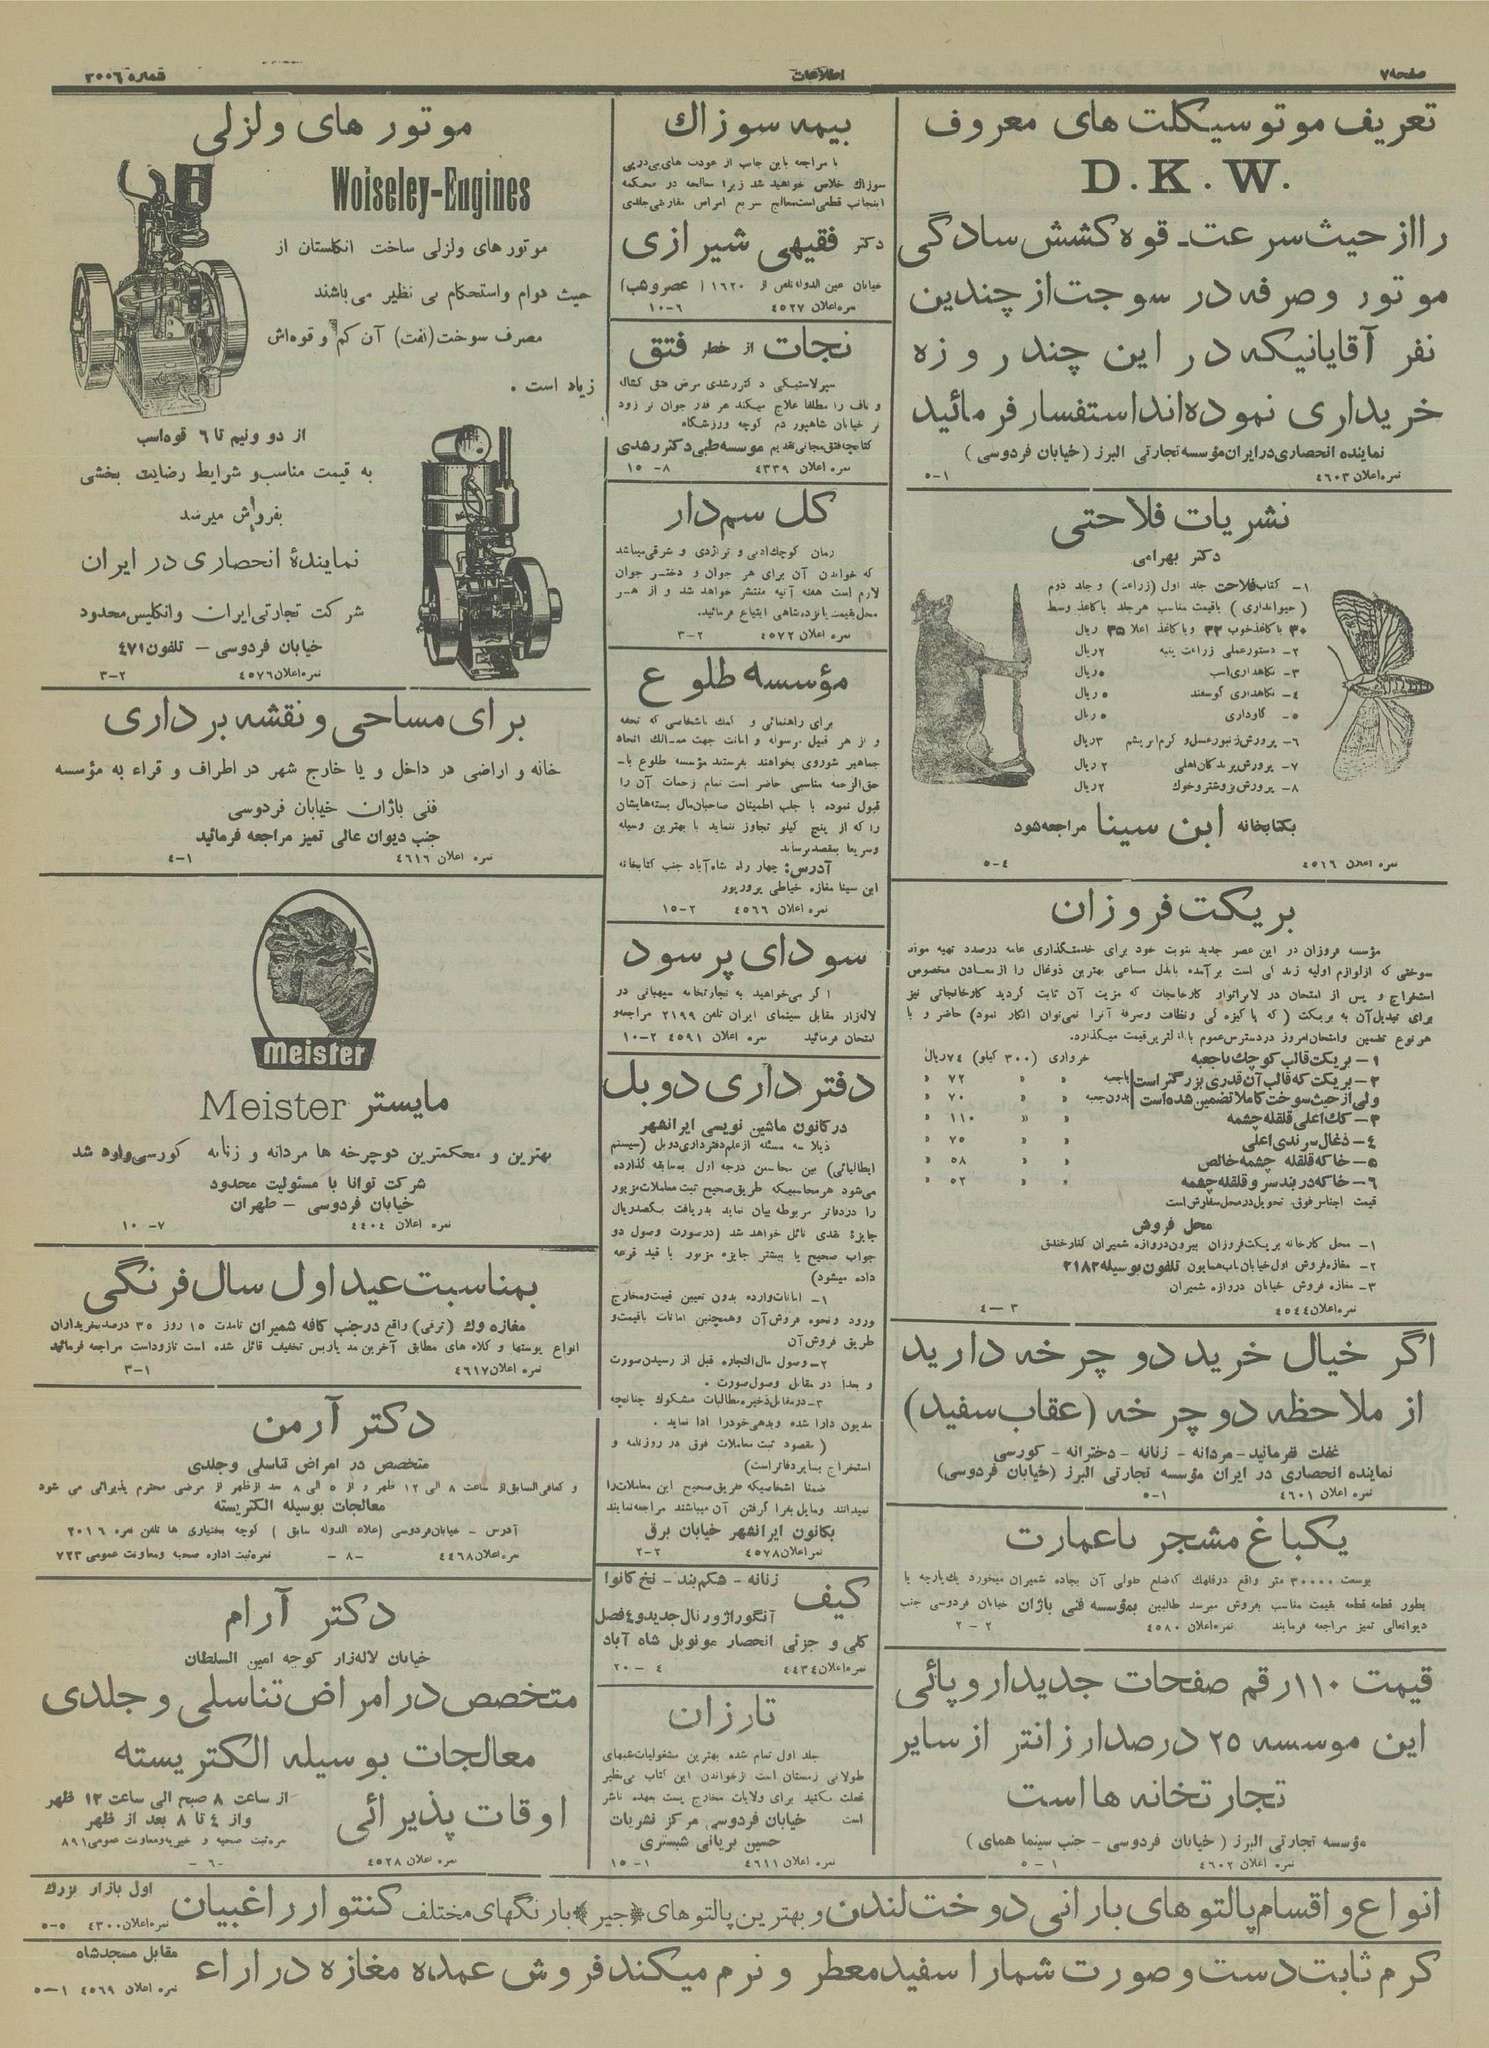 صفحه ۷
اطلاعات
شماره ۳۰۰۶
تعریف موتوسیکلت های معروف
D.K.W.
را از حیث سرعت ـ قوه کشش سادگی
موتور وصرفه در سوجت از چندین
نفر آقایانیکه در این چند روزه
خریداری نموده اند استفسار فرمائید
نماینده انحصاری در ایران مؤسسه تجارتی البرز (خیابان فردوسی)
نمره اعلان ۴۶۰۳ ۱-۵
نشریات فلاحتی
دکتر بهرامی
۱- کتاب فلاحت جلد اول (زراعت) و جلد دوم
(حیوانداری) باقیمت مناسب هر جلد با کاغذ وسط
۳۰ با کاغذ خوب ۳۳ و با کاغذ اعلا ۳۵ ریال
۲- دستور عملی زراعت پنبه ۲ ریال
۳- نگاهداری اسب ۵ ریال
۴- نگاهداری گوسفند ۵ ریال
۵- گاوداری ۵ ریال
۶- پرورش زنبور عسل و کرم ابریشم ۳ ریال
۷- پرورش پرندگان اهلی ۲ ریال
۸- پرورش بز و شتر و خوک ۲ ریال
بکتابخانه ابن سینا مراجعه شود
نمره اعلان ۴۵۱۶ ۴-۵
بریکت فروزان
مؤسسه فروزان در این عصر جدید بنوبت خود برای خدمتگذاری عامه درصدد تهیه مواد
سوختی که از لوازم اولیه زندگی است برآمده با بذل مساعی بهترین ذوغال را از معادن مخصوص
استخراج و پس از امتحان در لابراتوار کارخانجات که مزیت آن ثابت گردید کارخانجاتی نیز
برای تبدیل آن به بریکت (که پاکیزه گی ونظافت وصرفه آنرا نمی توان انکار نمود) حاضر و با
هر نوع تضمین وامتحان امروز در دسترس عموم با نازلترین قیمت میگذارد.
۱- بریکت قالب کوچک باجعبه خرواری (۳۰۰ کیلو) ۷۴ ریال
۲- بریکت که قالب آن قدری بزرگتر است باجعبه » » ۷۲ »
ولی از حیث سوخت کاملا تضمین شده است بدون جعبه » » ۷۰ »
۳- کک اعلی قلقله چشمه » » ۱۱۰ »
۴- ذغال سرندی اعلی » » ۷۵ »
۵- خاکه قلقله چشمه خالص » » ۵۸ »
۶- خاکه دربند سر و قلقله چشمه » » ۵۲ »
قیمت اجناس فوق تحویل در محل سفارش است
محل فروش
۱- محل کارخانه بریکت فروزان بیرون دروازه شمیران کنار خندق
۲- مغازه فروش اول خیابان باب همایون تلفون بوسیله ۲۱۸۲
۳- مغازه فروش خیابان دروازه شمیران
نمره اعلان ۴۵۴۴ ۳-۴
اگر خیال خرید دو چرخه دارید
از ملاحظه دو چرخه (عقاب سفید)
غفلت نفرمائید - مردانه - زنانه - دخترانه - کورسی
نماینده انحصاری در ایران مؤسسه تجارتی البرز (خیابان فردوسی)
نمره اعلان ۴۶۰۱ ۱-۵
یکباغ مشجر باعمارت
بوسعت ۳۰۰۰۰ متر واقع درقلهک که ضلع طولی آن بجاده شمیران میخورد یک پارچه یا
بطور قطعه قطعه بقیمت مناسب بفروش میرسد طالبین بمؤسسه فنی باژان خیابان فردوسی جنب
دیوانعالی تمیز مراجعه فرمایند نمره اعلان ۴۵۸۰ ۲-۲
قیمت ۱۱۰ رقم صفحات جدید اروپائی
این موسسه ۲۵ درصد ارزانتر از سایر
تجارتخانه ها است
مؤسسه تجارتی البرز (خیابان فردوسی - جنب سینما همای)
نمره اعلان ۴۶۰۲ ۱-۵
بیمه سوزاک
با مراجعه باین جانب از عودت های بی درپی
سوزاک خلاص خواهید شد زیرا معالجه در محکمه
اینجانب قطعی است معالج سریع امراض مقاربتی جلدی
دکتر فقیهی شیرازی
خیابان عین الدوله تلفن از ۱۶۲۰ (عصر وهب)
نمره اعلان ۴۵۲۷ ۶-۱۰
نجات از خطر فتق
سپرلاستیکی دکتر رشدی مرض فتق کشاله
و ناف را مطلقا علاج میکند هر قدر جوان تر زود
تر خیابان شاهپور دم کوچه ورزشگاه
کتابچه فتق مجانی تقدیم موسسه طبی دکتر رشدی
نمره اعلان ۴۳۳۹ ۸-۱۵
گل سم دار
رمان کوچک ادبی و تراژدی و شرقی میباشد
که خواندن آن برای هر جوان و دختر جوان
لازم است هفته آتیه منتشر خواهد شد و از هر
محل بقیمت پانزده شاهی ابتیاع فرمائید.
نمره اعلان ۴۵۷۲ ۲-۳
مؤسسه طلوع
برای راهنمائی و کمک باشخاصی که تحفه
و از هر قبیل مرسوله و امانت جهت ممالک اتحاد
جماهیر شوروی بخواهند بفرستند مؤسسه طلوع با
حق الزحمه مناسبی حاضر است تمام زحمات آن را
قبول نموده با جلب اطمینان صاحبان مال بسته هایشان
را که از پنج کیلو تجاوز ننماید با بهترین وسیله
وسریعا بمقصد برساند
آدرس: چهار راه شاه آباد جنب کتابخانه
ابن سینا مغازه خیاطی پرورپور
نمره اعلان ۴۵۶۶ ۲-۱۵
سودای پرسود
اگر می خواهید به تجارتخانه میهبانی در
لاله زار مقابل سینمای ایران تلفن ۲۱۹۹ مراجعه و
امتحان فرمائید نمره اعلان ۴۵۹۱ ۲-۱۰
دفتر داری دوبل
در کانون ماشین نویسی ایرانشهر
ذیلا سه مسئله از علم دفتر داری دوبل (سیستم
ایطالیائی) بین محاسبین درجه اول بمسابقه گذارده
می شود هر محاسبیکه طریق صحیح ثبت معاملات مزبور
را در دفاتر مربوطه بیان نماید بدریافت یکصد ریال
جایزه نقدی نائل خواهد شد (درصورت وصول دو
جواب صحیح یا بیشتر جایزه مزبور با قید قرعه
داده میشود)
۱- امانات وارده بدون تعیین قیمت و مخارج
ورود ونحوه فروش آن وهمچنین امانات باقیمت و
طریق فروش آن
۲- وصول مال التجاره قبل از رسیدن صورت
و بعدا در مقابل وصول صورت.
۳- در مقابل ذخیره مطالبات مشکوک چنانچه
مدیون دارا شده وبدهی خودرا ادا نماید.
(مقصود ثبت معاملات فوق در روزنامه و
استخراج بسایر دفاتر است)
ضمنا اشخاصیکه طریق صحیح این معاملات را
نمیدانند ومایل بفرا گرفتن آن میباشند مراجعه نمایند
بکانون ایرانشهر خیابان برق
نمره اعلان ۴۵۷۸ ۲-۲
کیف زنانه - شکم بند - نخ کانوا
آنگورا ژورنال جدید و ۴ فصل
کلی و جزئی انحصار مونوبل شاه آباد
نمره اعلان ۴۴۳۴ ۴-۲۰
تارزان
جلد اول تمام شده بهترین مشغولیات شبهای
طولانی زمستان است از خواندن این کتاب بی نظیر
غفلت مکنید برای ولایات مخارج پست بعهده ناشر
است خیابان فردوسی مرکز نشریات
حسین بریانی شبستری
نمره اعلان ۴۶۱۱ ۱-۱۵
موتور های ولزلی
Wolseley-Engines
موتور های ولزلی ساخت انگلستان از
حیث دوام واستحکام بی نظیر می باشند
مصرف سوخت (نفت) آن کم و قوه اش
زیاد است.
از دو ونیم تا ۶ قوه اسب
به قیمت مناسب و شرایط رضایت بخشی
بفروش میرسد
نمایندۀ انحصاری در ایران
شرکت تجارتی ایران وانگلیس محدود
خیابان فردوسی - تلفون ۴۷۱
نمره اعلان ۴۵۷۶ ۲-۳
برای مساحی ونقشه برداری
خانه و اراضی در داخل و یا خارج شهر در اطراف و قراء به مؤسسه
فنی باژان خیابان فردوسی
جنب دیوان عالی تمیز مراجعه فرمائید
نمره اعلان ۴۶۱۶ ۱-۴
Meister
مایستر Meister
بهترین و محکمترین دوچرخه ها مردانه و زنانه کورسی وارد شد
شرکت توانا با مسئولیت محدود
خیابان فردوسی - طهران
نمره اعلان ۴۴۰۴ ۷-۱۰
بمناسبت عید اول سال فرنگی
مغازه وک (ترقی) واقع درجنب کافه شمیران تامدت ۱۵ روز ۳۵ درصد بخریداران
انواع پوستها و کلاه های مطابق آخرین مد پاریس تخفیف قائل شده است تازوداست مراجعه فرمائید
نمره اعلان ۴۶۱۷ ۱-۳
دکتر آرمن
متخصص در امراض تناسلی وجلدی
و کمافی السابق از ساعت ۸ الی ۱۲ ظهر و از ۵ الی ۸ بعد ازظهر از مرضی محترم پذیرائی می شود
معالجات بوسیله الکتریسته
آدرس - خیابان فردوسی (علاء الدوله سابق) کوچه بختیاری ها تلفن نمره ۲۰۱۶
نمره اعلان ۴۴۶۸ -۸- نمره ثبت اداره صحیه ومعاونت عمومی ۷۲۳
دکتر آرام
خیابان لاله زار کوچه امین السلطان
متخصص در امراض تناسلی و جلدی
معالجات بوسیله الکتریسته
اوقات پذیرائی از ساعت ۸ صبح الی ساعت ۱۲ ظهر
واز ۴ تا ۸ بعد از ظهر
نمره ثبت صحیه و خیریه ومعاونت عمومی ۸۹۱
نمره اعلان ۴۵۲۸ -۶-
انواع و اقسام پالتوهای بارانی دوخت لندن و بهترین پالتوهای (جیر) بارنگهای مختلف کنتوار راغبیان اول بازار بزرگ
نمره اعلان ۴۳۰۰ ۵-۵
کرم ثابت دست و صورت شمارا سفید معطر و نرم میکند فروش عمده مغازه دراراء مقابل مسجد شاه
نمره اعلان ۴۵۶۹ ۱-۵